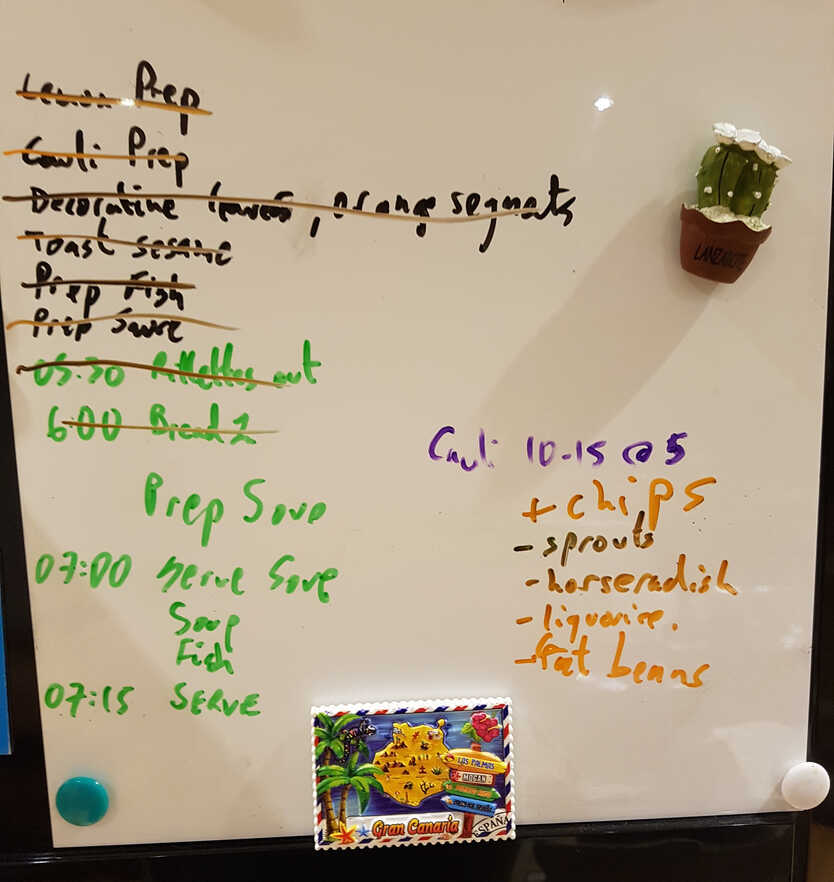 Lemon Prep
Cauli Prep
Decorative leaves, orange segments
Toast sesame
Prep Fish
Prep Sauce
05:30 Rillettes out
6:00 Bread
Prep
07:00 Serve
Soup
Fish
07:15 SERVE
Cauli 10-15 @ 5
+ chips
- sprouts
- horseradish
- liquorice.
- fat beans
LANZAROTE
LAS PALMAS
MOGAN
Gran Canaria
ESPAÑA